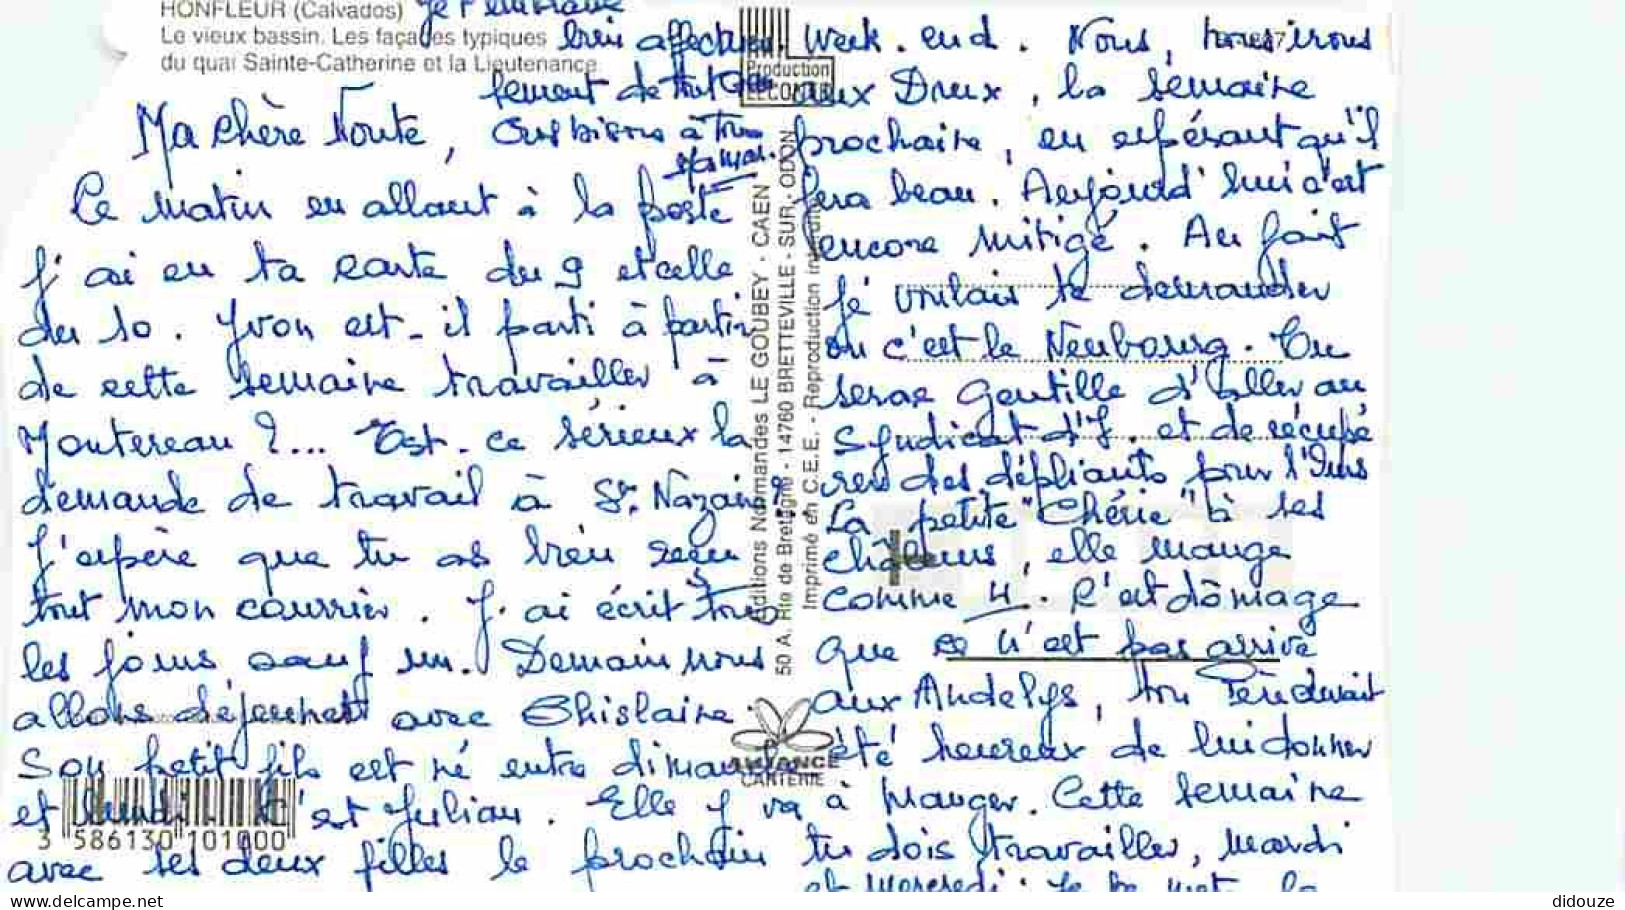 HONFLEUR (Calvados)
Le vieux bassin. Les façades typiques
du quai Sainte-Catherine et la Lieutenance
Ma chère Noute,
Ce matin en allant à la poste
j'ai eu ta carte du 9 et celle
du 10. Yvon est-il parti à partir
de cette semaine travailler à
Montereau ?... Est-ce sérieux la
demande de travail à St. Nazaire ?
J'espère que tu as bien reçu
tout mon courrier. J'ai écrit tous
les jours sauf un. Demain nous
allons déjeuner avec Ghislaine.
Son petit fils est né entre dimanche
et lundi. C'est Julian. Elle y va
avec ses deux filles le prochain
week-end. Nous, nous irons
aux Dreux, la semaine
prochaine, en espérant qu'il
fera beau. Aujourd'hui c'est
encore mitigé. Au fait
je voulais te demander
où c'est le Neubourg. Tu
seras gentille d'aller au
Syndicat d'I. et de récupé
rer des dépliants pour l'Eure
La petite "Chérie" à ses
chaleurs, elle mange
comme 4. C'est dômage
que ce n'est pas arrivé
aux Andelys, ton
été heureux de lui donner
à manger. Cette semaine
tu dois travailler, mardi
et mercredi. Je te met la
Je t'embrasse
bien affectueu-
sement de tout
bisous à tous
maman.
Production
LECONTE
Editions Normandes LE GOUBEY - CAEN
50 A, Rte de Bretagne - 14760 BRETTEVILLE - SUR - ODON
Imprimé en C.E.E. - Reproduction interdite
CARTERIE
3 586130 101000
didouze